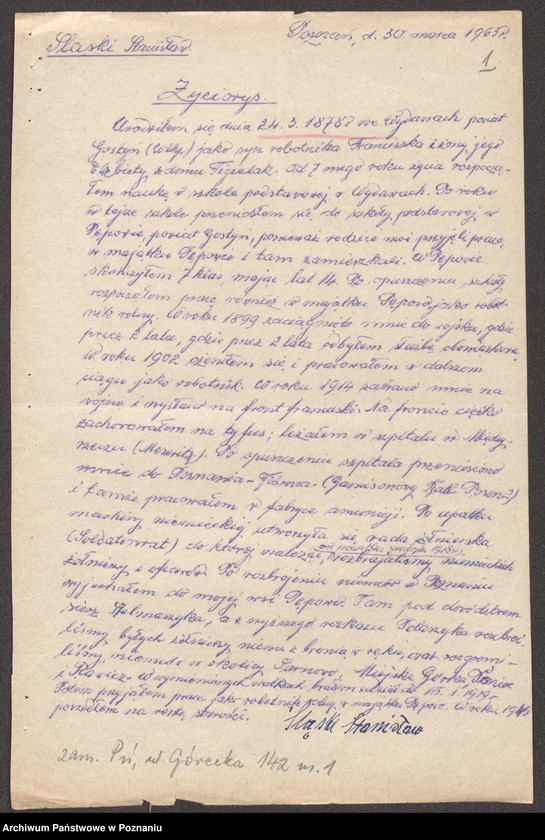 Ślaski Stanisław.
Poznań, d. 30 marca 1965r.
1
Życiorys.
Urodziłem się dnia 24.3.1878r we Wydawach powiat
Gostyń (Wlkp.) jako syn robotnika Franciszka i żony jego
Elżbiety z domu. Od 7 mego roku życia rozpoczą-
łem naukę w szkole podstawowej w Wydawach. Po roku
w tejże szkole przeniosłem się do szkoły podstawowej w
Pępowie, powiat Gostyń, ponieważ rodzice moi przyjęli pracę
w majątku Pępowo i tam zamieszkali. W Pępowie
skończyłem 7 klas, mając lat 14. Po opuszczeniu szkoły
rozpocząłem pracę również w majątku Pępowo jako robot-
nik rolny. W roku 1899 zaciągnięto mnie do wojska, gdzie
przez 2 lata, gdzie przez 2 lata odbyłem służbę
W roku 1902 ożeniłem się i pracowałem w dalszym
ciągu jako robotnik. W roku 1914 zabrano mnie na
wojnę i wysłano na front francuski. Na froncie ciężko
zachorowałem na tyfus; leżałem w szpitalu w Między-
rzeczu (Meseritz). Po opuszczeniu szpitala przeniesiono
mnie do Poznania-Główna. (Garnisonowy Batl. Posen 2)
i tamże pracowałem w fabryce amunicji. Po upadku
machiny niemieckiej, utworzyła się rada żołnierska
(Soldatenrat) do której należąc, rozbrajaliśmy niemieckich
od początku grudnia 1918r.
żołnierzy i oficerów. Po rozbrojeniu niemców w Poznaniu
wyjechałem do mojej wsi Pępowo. Tam pod dowództwem
sierż. a z wyższego rozkazu rozbroi-
liśmy byłych żołnierzy niem. z bronią w ręku, oraz rozgromi-
liśmy niemców w okolicy Sarnowo, Miejska Górka,
i Rawicz. W wymienionych walkach brałem udział do 15.1.1919.
Potem przyjąłem pracę jako robotnik rolny w majątku Pępowo. W roku
poszedłem na rentę starości.
Śląski Stanisław
zam. Pń, ul. Górecka 142 m. 1
Archiwum Państwowe w Poznaniu